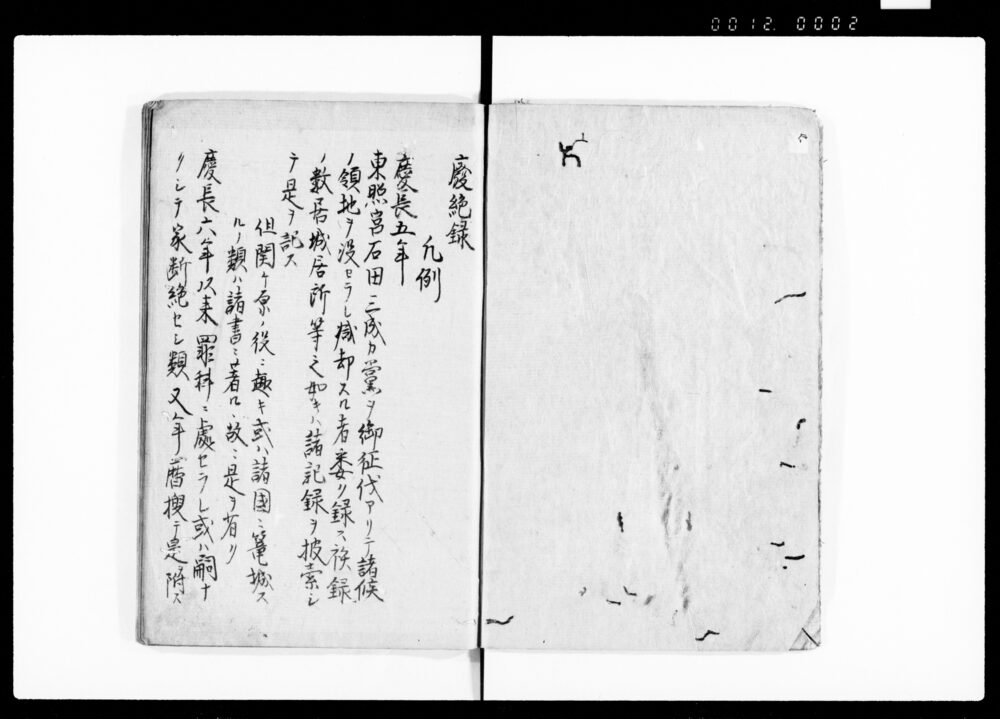 0012. 0002
廢絶録
凡例
慶長五年
東照宮石田三成カ黨ヲ御征伐アリテ諸候
ノ領地ヲ没セラレ減却スル者委ク録ス秩録
ノ数居城居所等之如キハ諸記録ヲ披索シ
テ是ヲ記ス
但関ケ原ノ役ニ趣キ或ハ諸國ニ篭城ス
ルノ類ハ諸書ニ著ル故ニ是ヲ省ク
慶長六年以来罪科ニ處セラレ或ハ嗣ナ
クシテ家断絶セシ類又年暦
テ是附ス